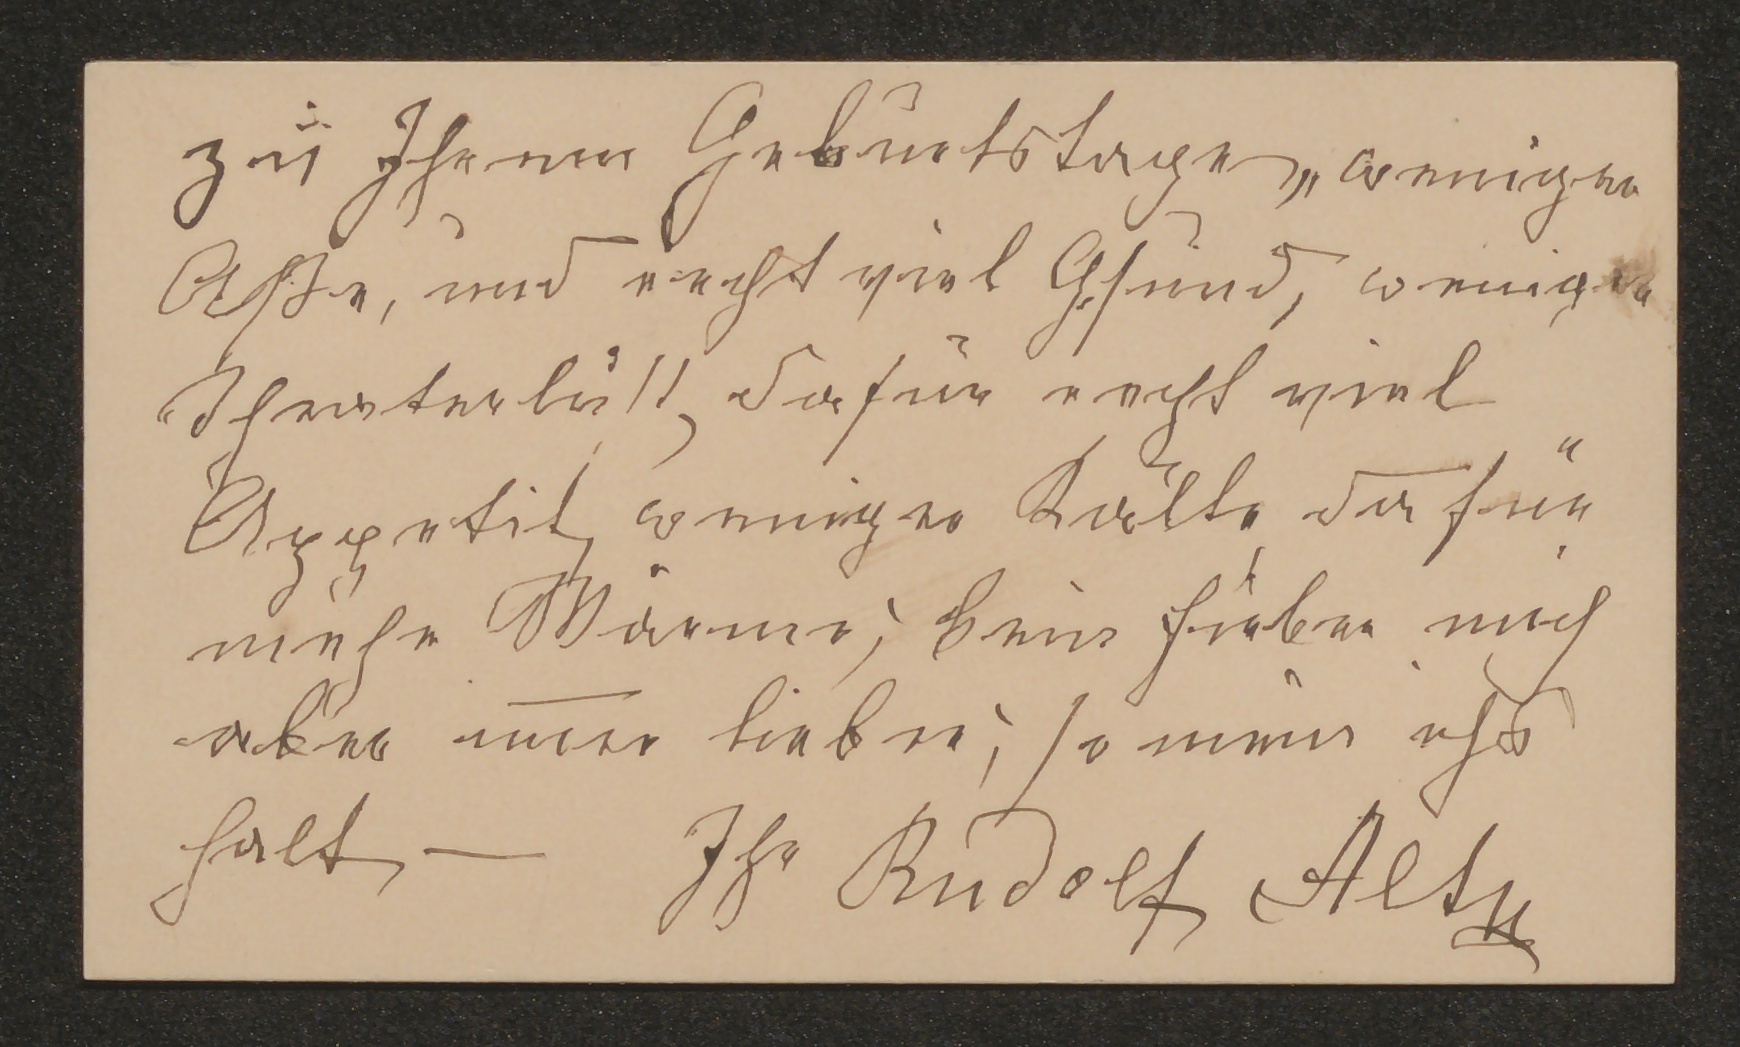 zu Ihrem Geburtstage, „weniger
Asse, und recht viel Gsund, weniger
Theaterlust, dafür recht viel
Appetit, weniger Kälte, dafür
mehr Wärme; kein Fieber mich
aber immer lieber; so mein ichs
halt, — Ihr Rudolf Alt